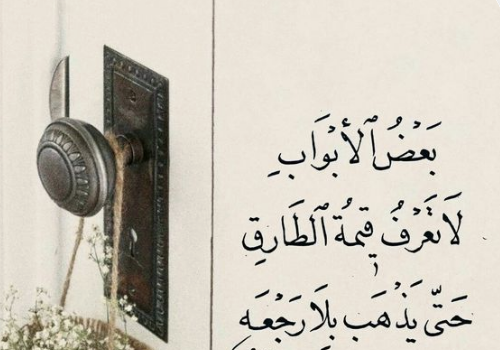 بَعْضُ ٱلأَبْوَابِ
لَا تَعْرِفُ قِيمَةَ ٱلطَّارِقِ
حَتَّى يَذْهَب بِلَا رَجْعَه